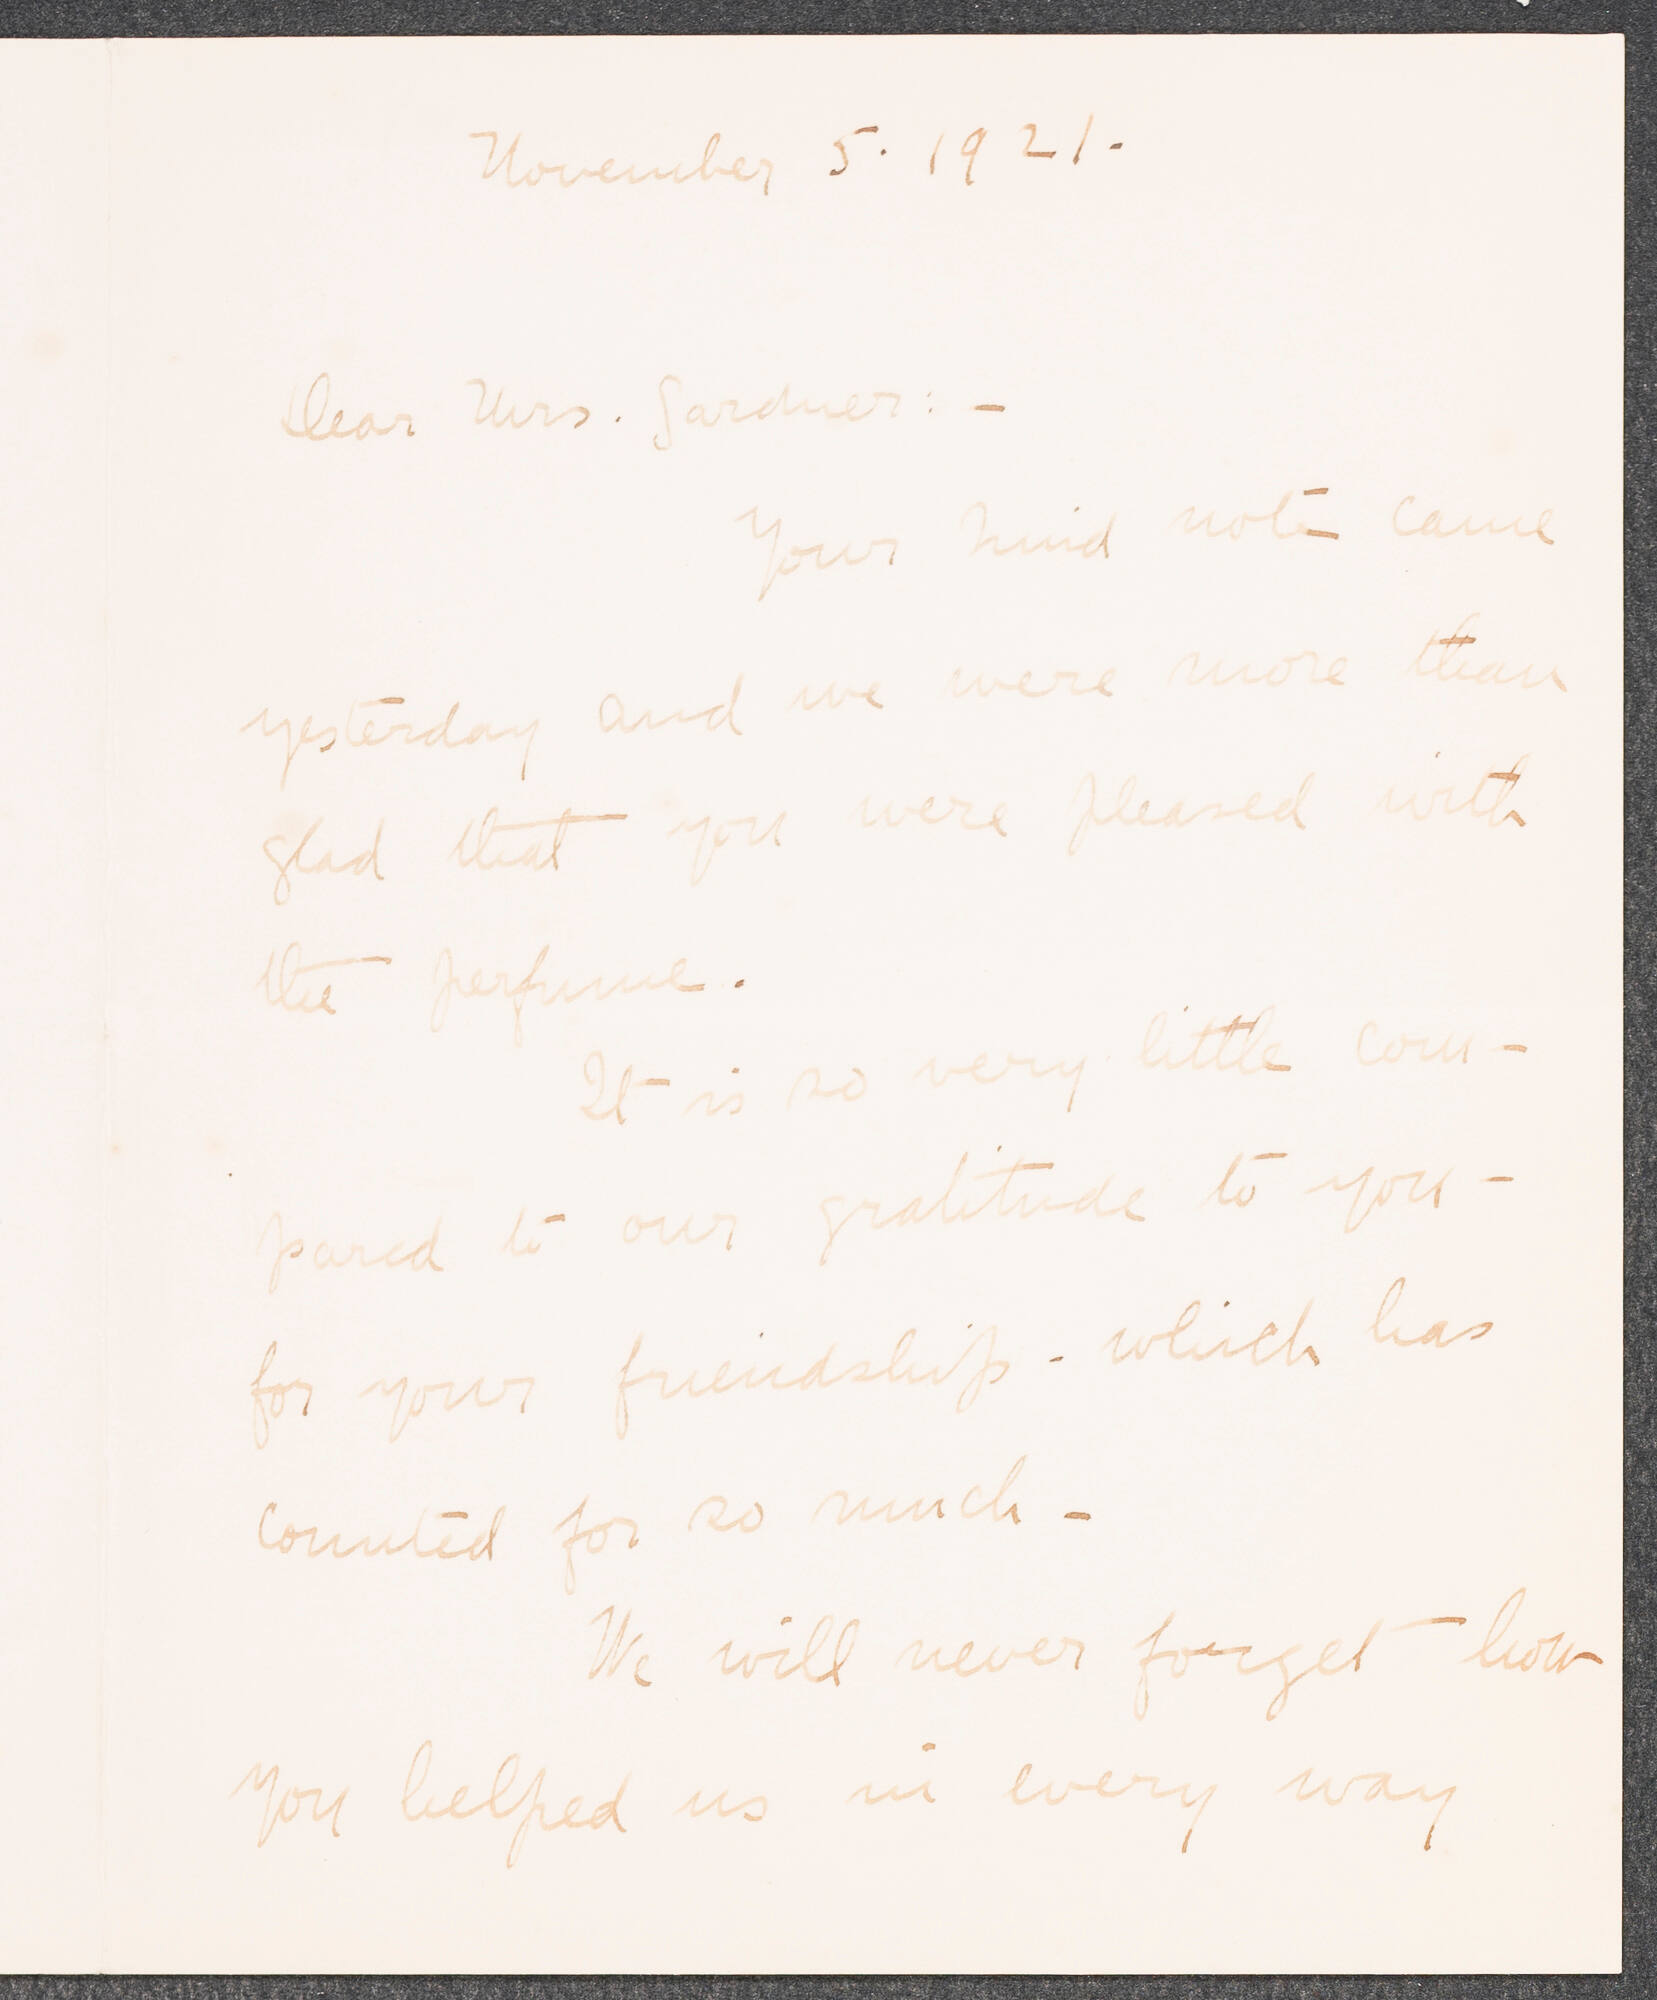 November 5. 1921.
Dear Mrs. Gardner: -
Your kind note came
yesterday and we were more than
glad that you were pleased with
the perfume.
It is so very little com-
pared to our gratitude to you -
for your friendship - which has
counted for so much -
We will never forget how
you helped us in every way